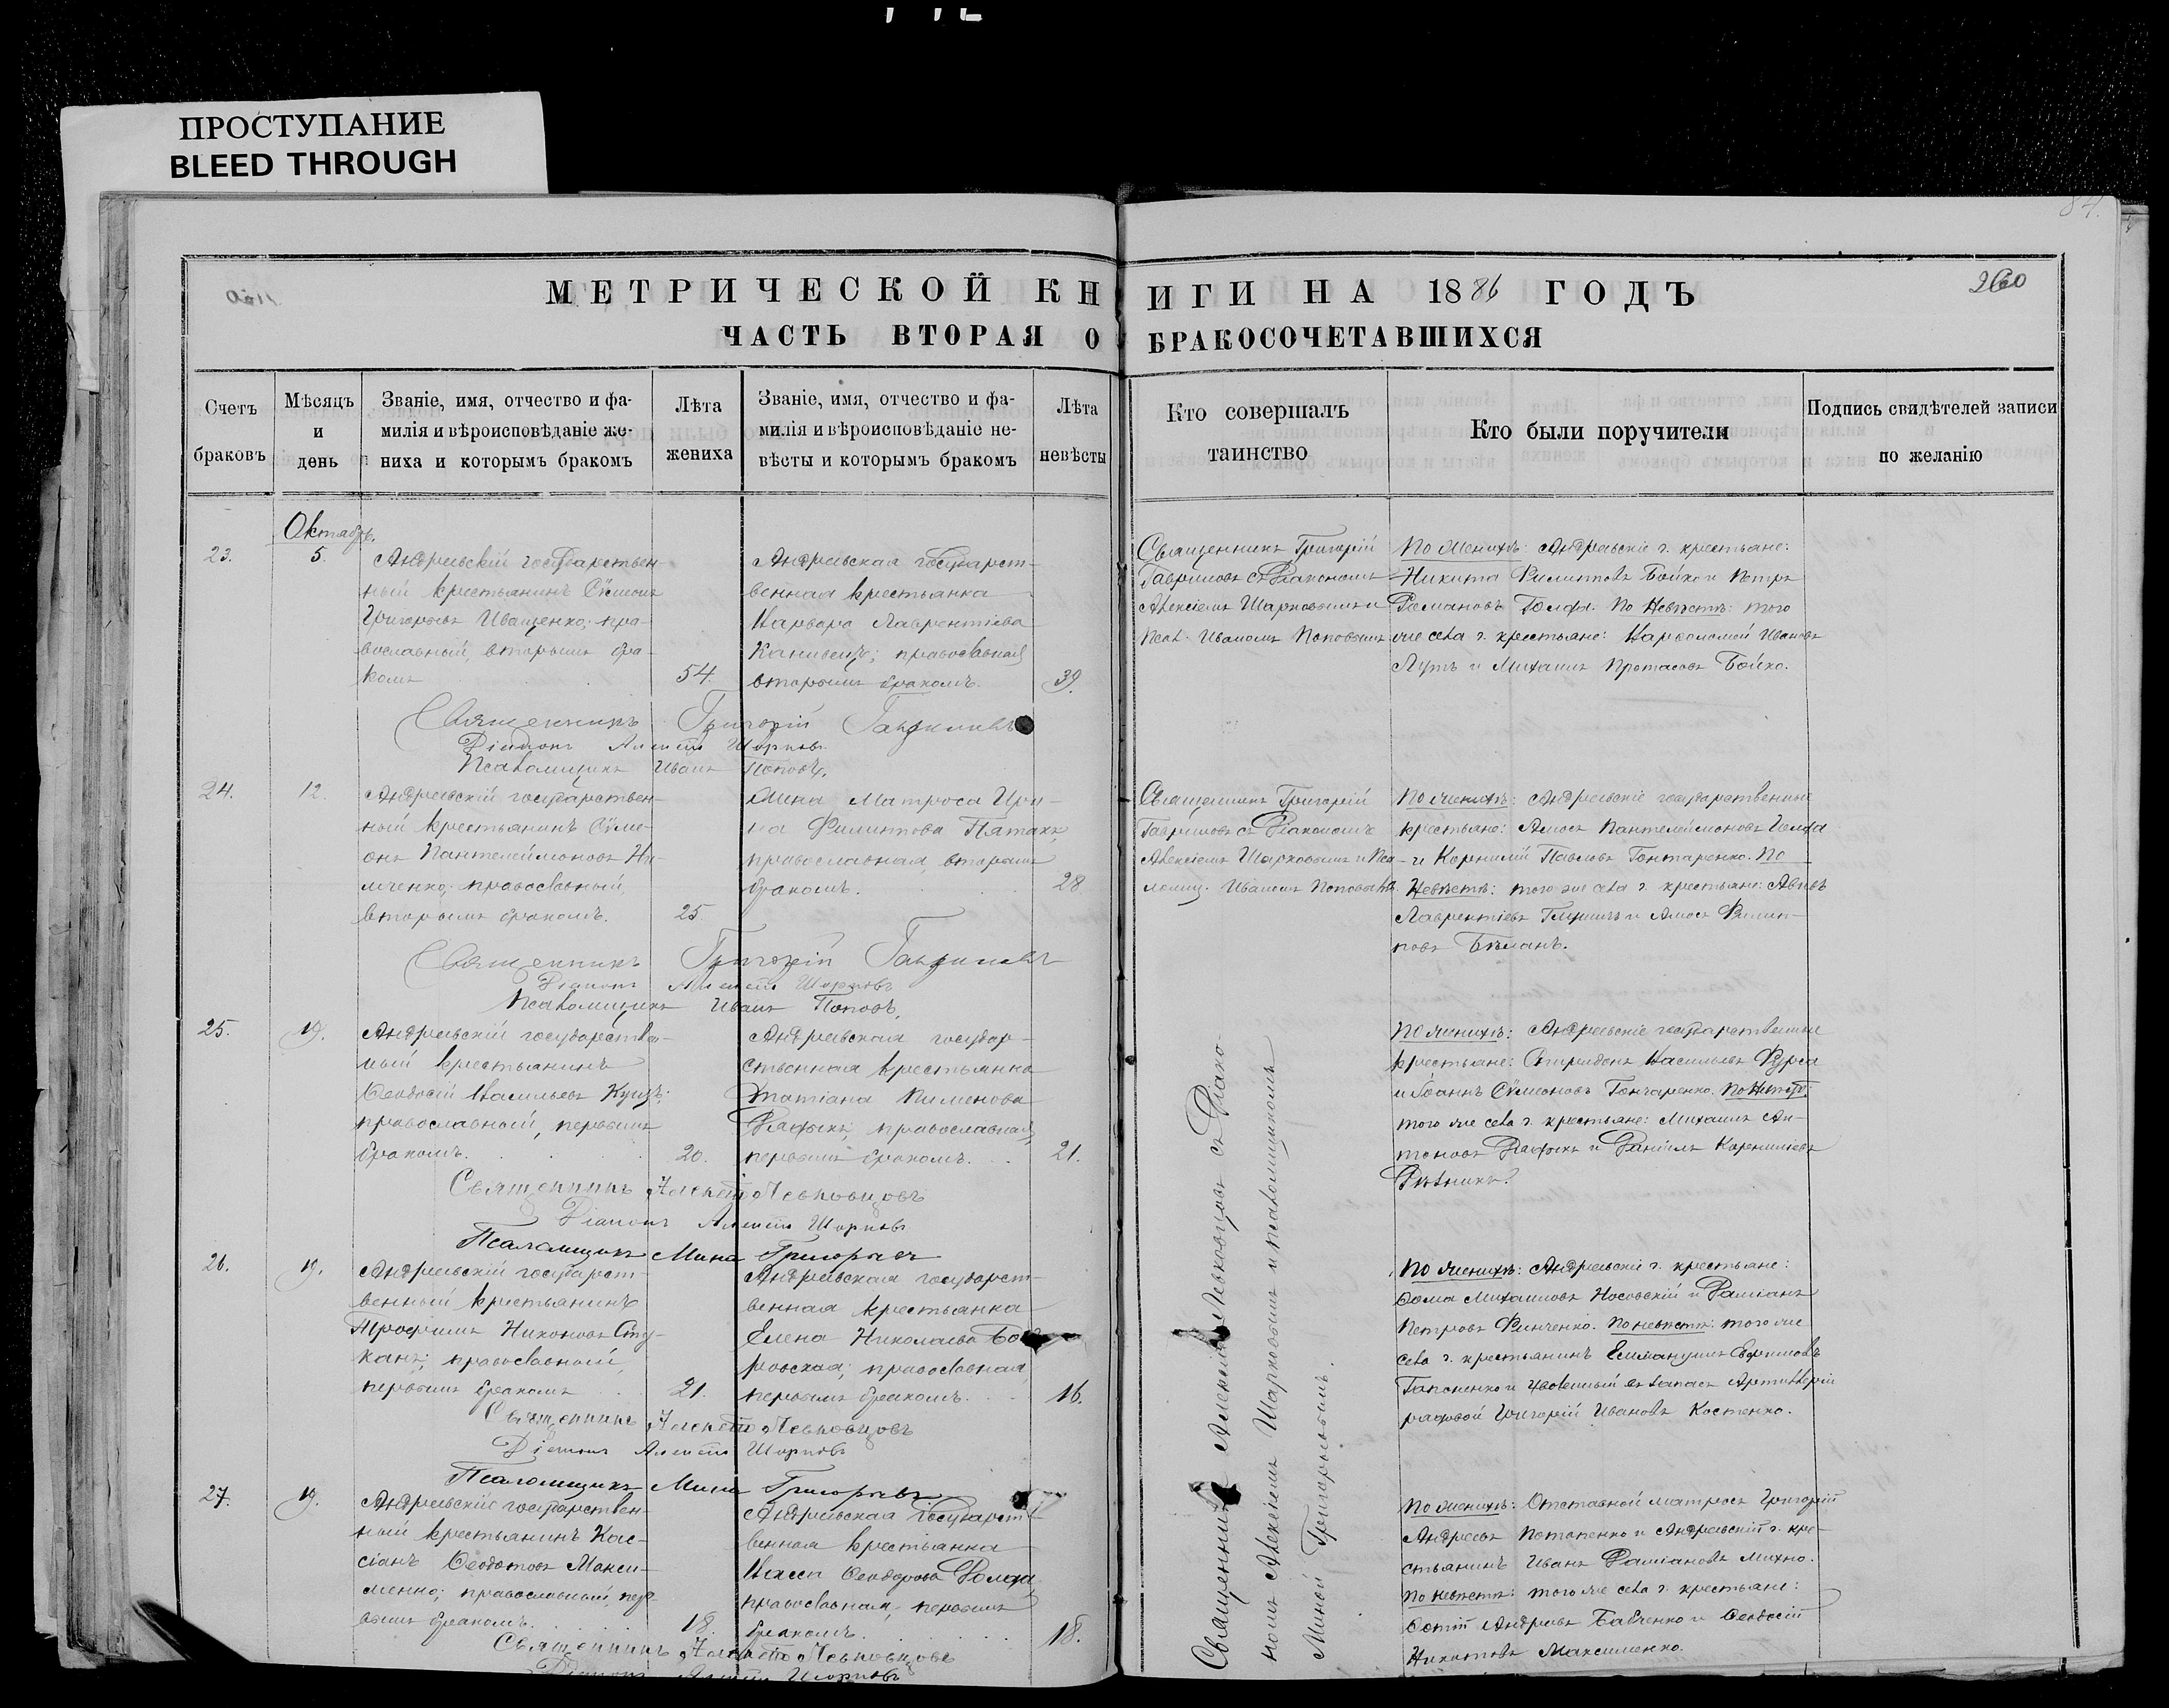 ПРОСТУПАНИЕ
BLEED THROUGH
84.
МЕТРИЧЕСКОЙ КНИГИ НА 1886 ГОДЪ
260
ЧАСТЬ ВТОРАЯ О БРАКОСОЧЕТАВШИХСЯ
Счетъ браковъ
Мѣсяцъ и день
Званіе, имя, отчество и фа-
милія и вѣроисповѣданіе же-
ниха и которымъ бракомъ
Лѣта жениха
Званіе, имя, отчество и фа-
милія и вѣроисповѣданіе не-
вѣсты и которымъ бракомъ
Лѣта невѣсты
Кто совершалъ
таинство
Кто были поручители
Подпись свидѣтелей записи
по желанію
Октябрь.
23.
5.
Андреевскій государствен-
ный крестьянинъ Сѵмеонъ
Григорьевъ Иващенко; пра-
вославный, вторымъ бра-
комъ
54.
Андреевская государст-
венная крестьянка
Варвара Лаврентіева
православная
вторымъ бракомъ.
39.
Священникъ Григорій
Гавриловъ съ Діакономъ
Алексіемъ Шарковымъ и
Псал. Иваномъ Поповымъ
По женихѣ: Андреевскіе г. крестьяне:
Никита Филипповъ Бойко и Петръ
Романовъ Голфа. По Невѣстѣ: того
же села г. крестьяне: Варѳоломей Ивановъ
и Михаилъ Протасовъ Бойко.
Священникъ Григорій Гавриловъ
Діаконъ Алексѣй Шарковъ
Псаломщикъ Иванъ Поповъ.
24.
12.
Андреевскій государствен-
ный крестьянинъ Сѵме-
онъ Пантелеймоновъ Ни-
православный,
вторымъ бракомъ.
25.
Жена Матроса Ири-
на Филиппова
православная, вторымъ
бракомъ.
28.
Священникъ Григорій
Гавриловъ съ Діакономъ
Алексіемъ Шарковымъ и Пса-
ломщ. Иваномъ Поповымъ.
По женихѣ: Андреевскіе государственные
крестьяне: Амосъ Пантелеймоновъ
и Корнилій Павловъ Гонтаренко. По
Невѣстѣ: того же села г. крестьяне:
Лаврентіевъ и Амосъ Филип-
повъ
Священникъ Григорій Гавриловъ
Діаконъ Алексѣй Шарковъ
Псаломщикъ Иванъ Поповъ.
25.
19.
Андреевскій государствен-
ный крестьянинъ
Ѳеодосій Васильевъ
православный, первымъ
бракомъ.
20.
Андреевская государ-
ственная крестьянка
Татіана Пименова
православная,
первымъ бракомъ.
21.
По женихѣ: Андреевскіе государственные
крестьяне: Спиридонъ Васильевъ Фурса
и Іоаннъ Сѵмеоновъ Гончаренко. По Невѣстѣ:
того же села г. крестьяне: Михаилъ Ан-
тоновъ и Даніилъ Корниліевъ
Священникъ Алексѣй Левковцовъ
Діаконъ Алексѣй Шарковъ
Псаломщикъ Мина Григорьевъ
26.
19.
Андреевскій государст-
венный крестьянинъ
Трофимъ Никоновъ Сту-
канъ; православный,
первымъ бракомъ
21.
Андреевская государст-
венная крестьянка
Елена Николаева
православная,
первымъ бракомъ.
16.
По женихѣ: Андреевскіе г. крестьяне:
Ѳома Михаиловъ Носовскій и Даміанъ
Петровъ Финченко. По невѣстѣ: того же
села г. крестьянинъ Емануилъ Ефремовъ
Гапоненко и уволенный въ запасъ Артиллеріи
рядовой Григорій Ивановъ Костенко.
Священникъ Алексѣй Левковцовъ
Діаконъ Алексѣй Шарковъ
Псаломщикъ Мина Григорьевъ
27.
19.
Андреевскій государствен-
ный крестьянинъ Кас-
сіанъ Ѳеодотовъ Макси-
менко; православный, пер-
вымъ бракомъ.
18.
Андреевская Государст-
венная крестьянка
Ѳеодорова
православная, первымъ
бракомъ.
18.
По женихѣ: Отставной матросъ Григорій
Андреевъ Потапенко и Андреевскій г. кре-
стьянинъ Иванъ Даміановъ Михно.
По невѣстѣ: того же села г. крестьяне:
Фотій Андреевъ Бабченко и Ѳеодосій
Максименко.
Священникъ Алексѣй Левковцовъ
Діаконъ Алексѣй Шарковъ
Священникъ Алексій Левковцовъ съ Діако-
номъ Алексіемъ Шарковымъ и псаломщикомъ
Миной Григорьевымъ.